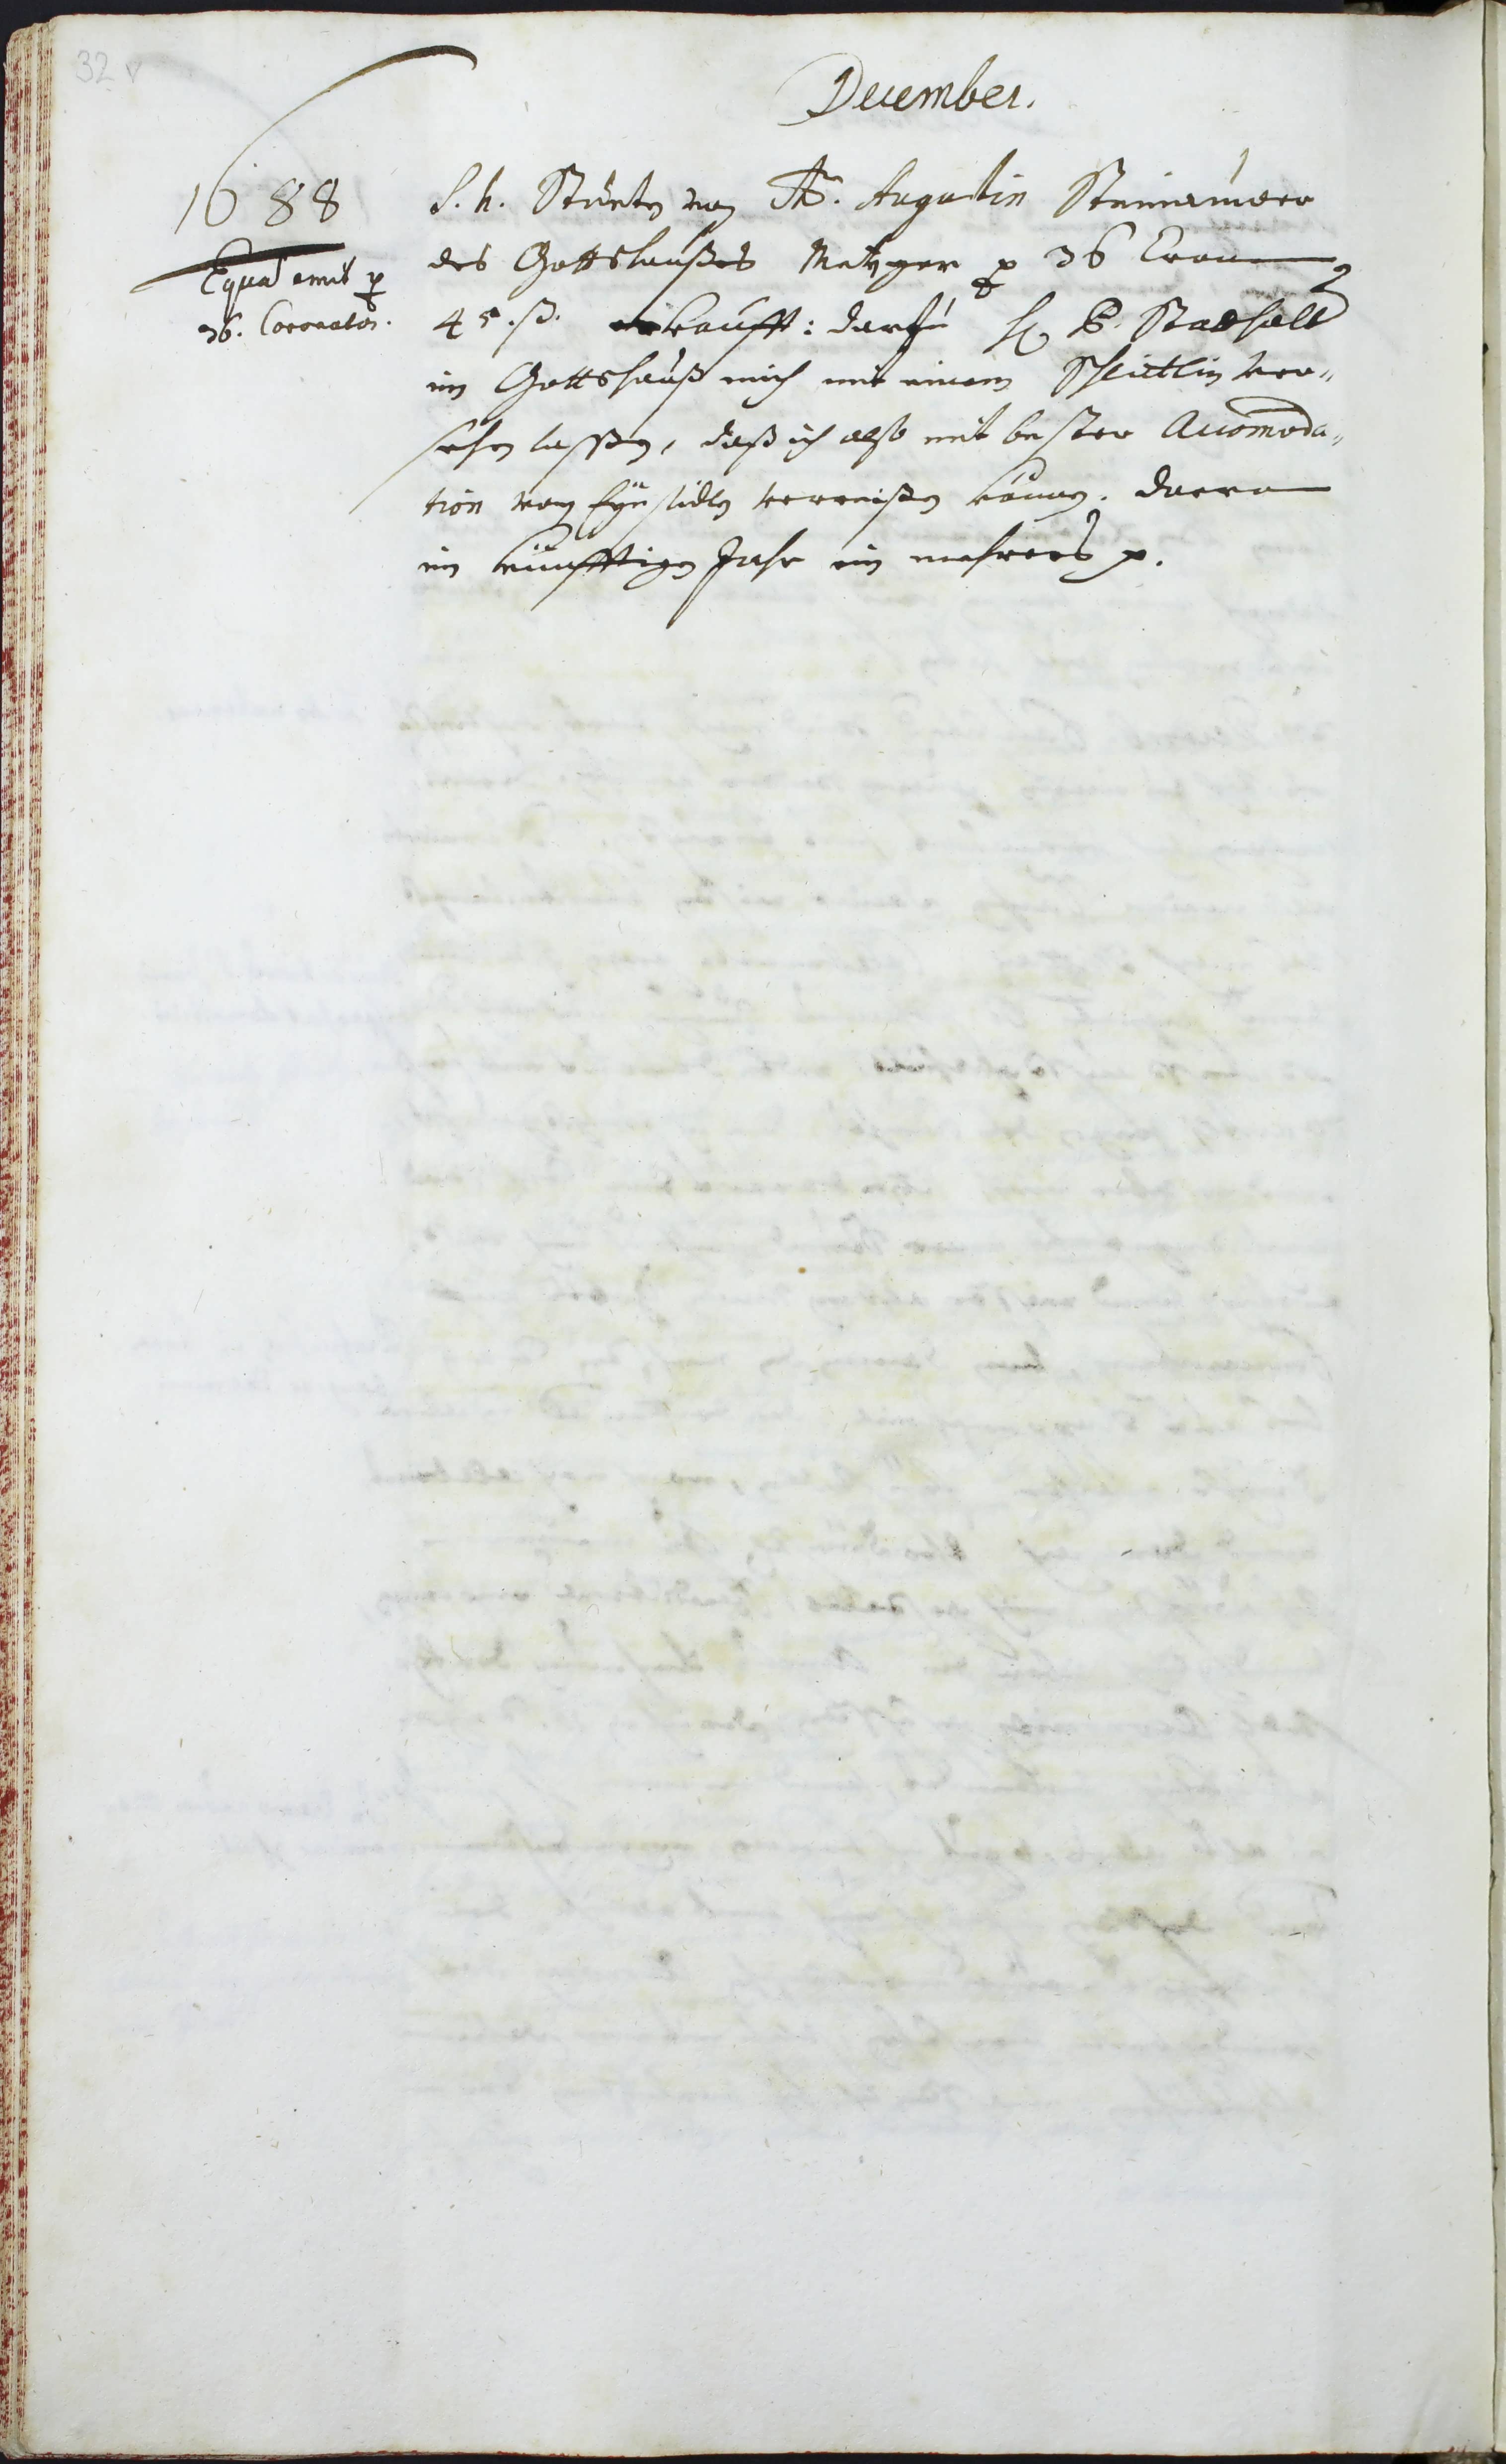 32 v
December.
1688
Equam emit p
36. Coronatos.
S. h. Stuetn von Mr. Augustin Steinauwer
des Gottshaußes Metzger p 36 Cronen
45 .ß. erkaufft: darzu H. P. Statthalter
im Gottshauß mich mit einem Schlittlin ver„
sehen lassen, daß ich also mit bester Accomoda„
tion von Eynsidlen verreißen können. darvon
im künfftigen Jahr ein mehrers p.